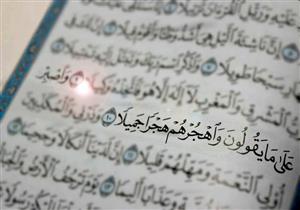 عَلَيْهِ وَرَتِّلِ
إِنَّ نَاشِئَةَ الَّيْلِ هِيَ أَشَدُّ وَطْئًا وَأَقْوَمُ قِيلًا
سَبْحًا طَوِيلًا ٧ وَاذْكُرِ اسْمَ رَبِّكَ وَتَبَتَّلْ إِلَيْهِ
الْمَشْرِقِ وَالْمَغْرِبِ لَا إِلَٰهَ إِلَّا هُوَ فَاتَّخِذْهُ وَكِيلًا ٩ وَاصْبِرْ
عَلَىٰ مَا يَقُولُونَ وَاهْجُرْهُمْ هَجْرًا جَمِيلًا ١٠ وَذَرْنِي وَالْمُكَذِّبِينَ
أُولِي النَّعْمَةِ وَمَهِّلْهُمْ قَلِيلًا ١١ إِنَّ لَدَيْنَا أَنكَالًا
وَعَذَابًا أَلِيمًا ١٣ يَوْمَ تَرْجُفُ الْأَرْضُ